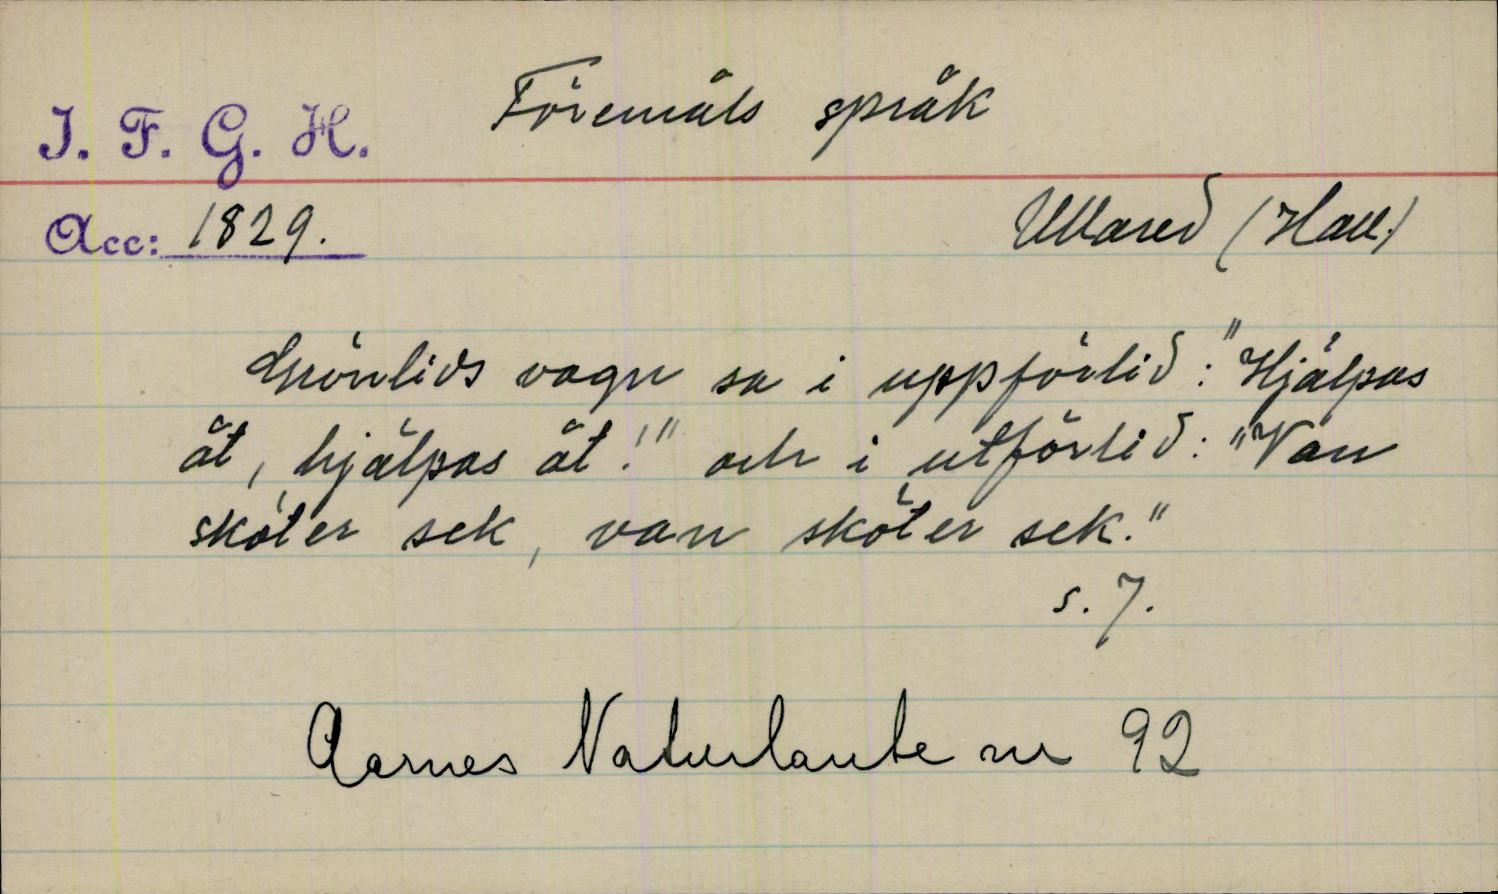 Föremåls språk
I. F. G. H.
Acc: 1829.
Ullared (Hall.)
Grönlids vagn sa i uppförlid: "Hjälpas
åt, hjälpas åt!" och i utförlid: "Van
sköter sek, van sköter sek."
s. 7.
Aarnes Naturlaute nr 92